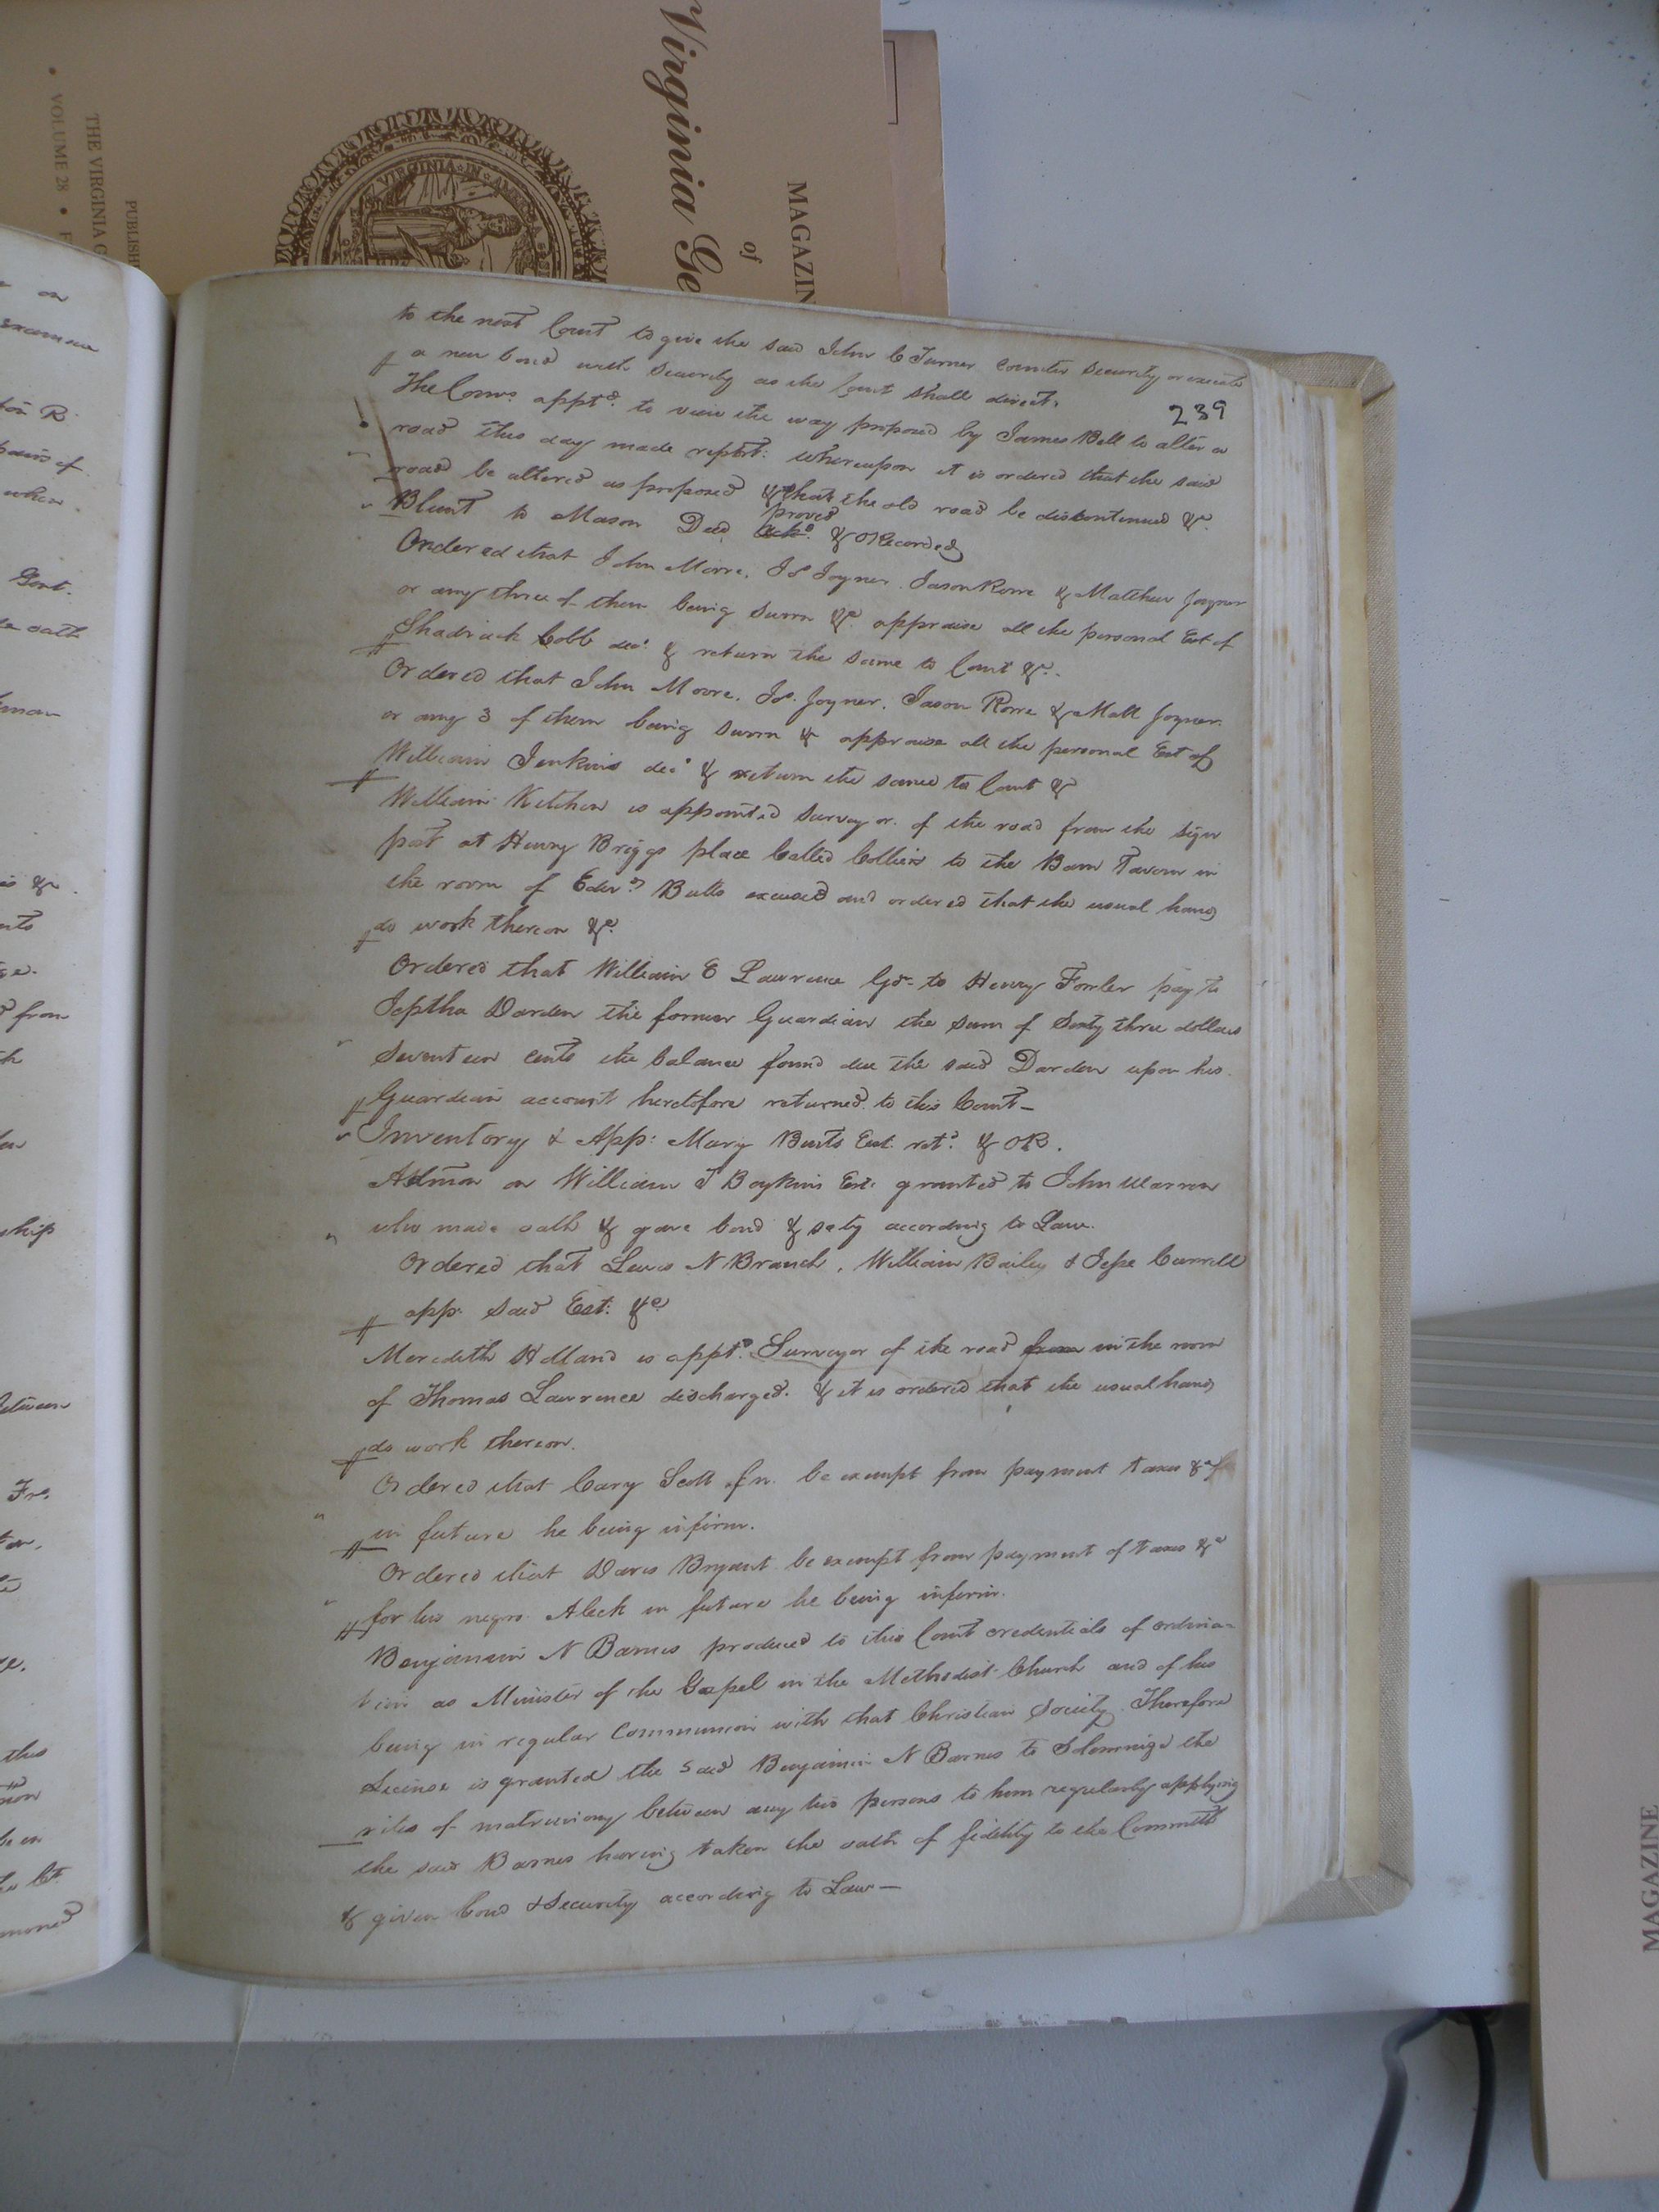 Virginia Ge
MAGAZIN
of
PUBLISH
THE VIRGINIA G
• VOLUME 28 • F
VIRGINIA • IN • AME
239
to the next Court to give the said John C Turner counter security or execute
a new bond with security as the Court shall direct.
The Comrs. apptd. to view the way proposed by James Bell to alter a
road this day made report: whereupon it is ordered that the said
road be altered as proposed & that the old road be discontinued &c.
Blunt to Mason Deed ackd. proved & ORecorded
Ordered that John Moore, Js Joyner, Jason Rowe & Matthew Joyner
or any three of them being sworn &c. appraise all the personal Est of
Shadrack Cobb decd. & return the same to Court &c.
Ordered that John Moore, Js. Joyner, Jason Rowe & Matt Joyner
or any 3 of them being sworn &c appraise all the personal Est of
William Jenkins decd & return the same to Court &c
William Kitchen is appointed surveyor of the road from the sign
post at Henry Briggs place Called Colliers to the Barn Tavern in
the room of Edwd. Butts excused and ordered that the usual hands
do work thereon &c.
Ordered that William E Lawrence Gdn. to Henry Fowler pay to
Jeptha Darden the former Guardian the sum of Sixty three dollars
Seventeen cents the balance found due the said Darden upon his
Guardian account heretofore returned to this Court —
Inventory & App: Mary Butts Est. retd. & OR.
Admon on William T Boykins Est: granted to John Warren
who made oath & gave bond & secty according to Law.
Ordered that Lewis N Branch, William Bailey & Jesse Carrell
app: said Est: &c
Meredith Holland is apptd. Surveyor of the road from in the room
of Thomas Lawrence discharged. & it is ordered that the usual hands
do work thereon.
Ordered that Cary Scott fn. be exempt from payment taxes &c
in future he being infirm.
Ordered that Davis Bryant be exempt from payment of taxes &c
for his negro Aleck in future he being infirm.
Benjamin N Barnes produced to this Court credentials of ordina-
tion as Minister of the Gospel in the Methodist Church and of his
being in regular Communion with that Christian Society. Therefore
License is granted the said Benjamin N Barnes to Solemnize the
rites of matrimony between any two persons to him regularly applying
the said Barnes having taken the oath of fidelity to the Commth
& given bond & Security according to Law —
MAGAZINE